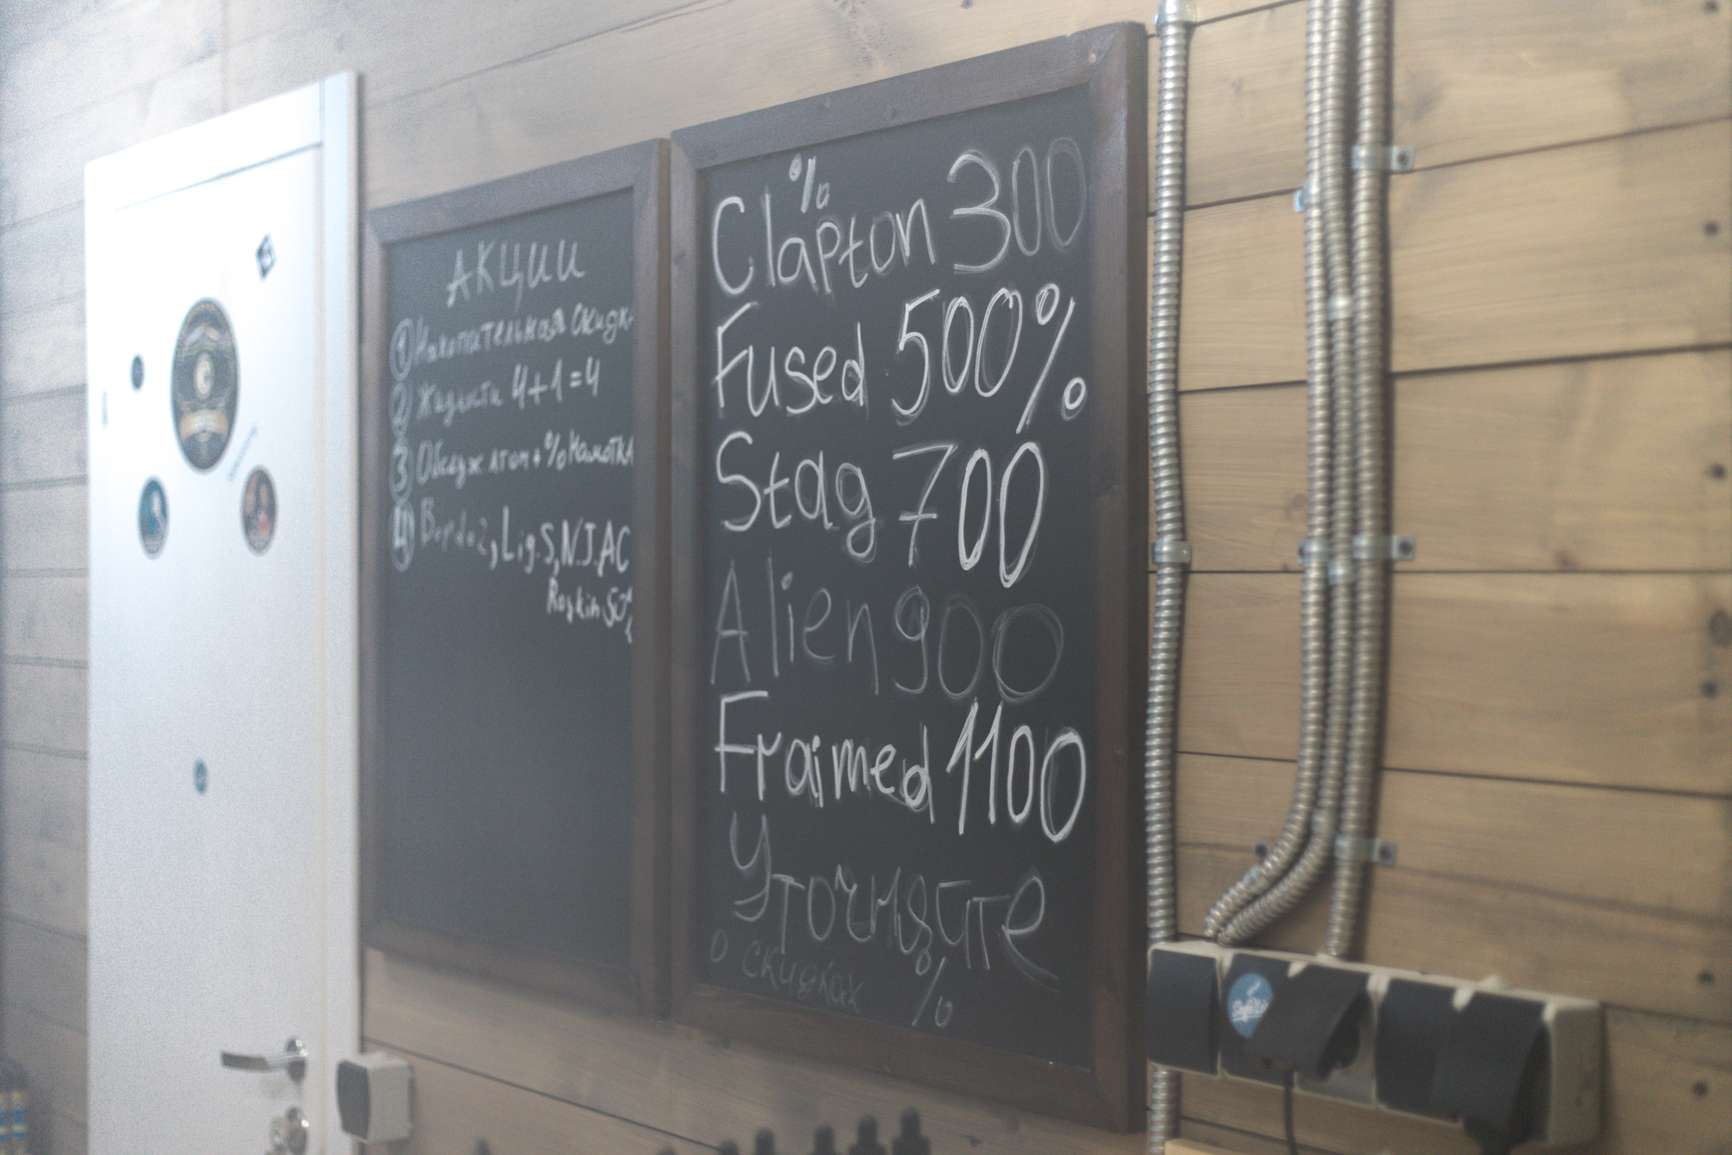 АКЦИИ
① Накопительная скидк
② Жидкости 4+1=4
③ Обслуж атом + % Намотка
④ L, g.S, N.J.AC
%
Clapton 300
Fused 500%
Stag 700
Alien 900
Fraimed 1100
Уточняйте
о скидках %